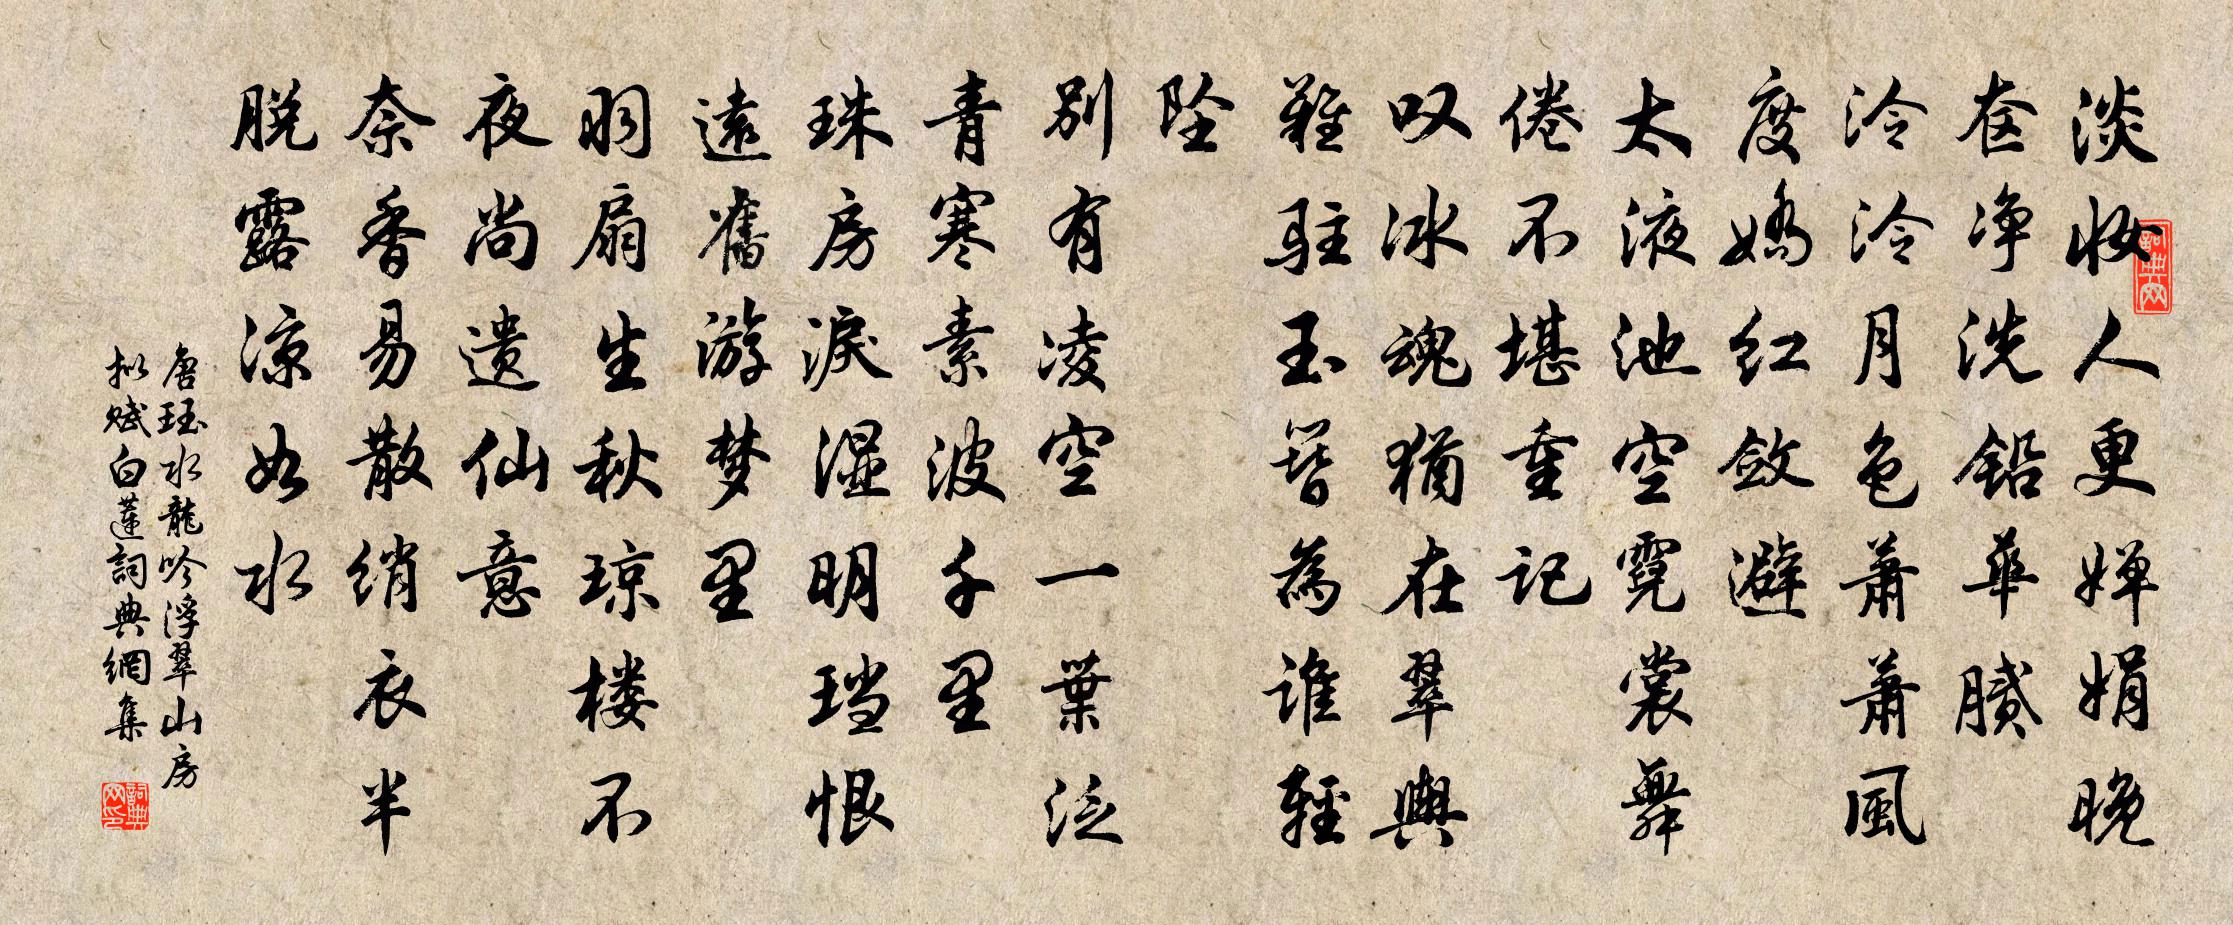 淡妝人更婵娟晚
奁净洗鉛華腻
泠泠月色萧萧風
度嬌红敛避
太液池空霓裳舞
倦不堪重记
叹冰魂猶在翠輿
難驻玉簪為谁輕
坠
别有凌空一葉泛
青寒素波千里
珠房淚湿明珰恨
遠舊游梦里
羽扇生秋琼楼不
夜尚遗仙意
奈香易散绡衣半
脱露涼如水
唐珏水龍吟浮翠山房
拟赋白莲詞典網集
詞典网
詞典网印